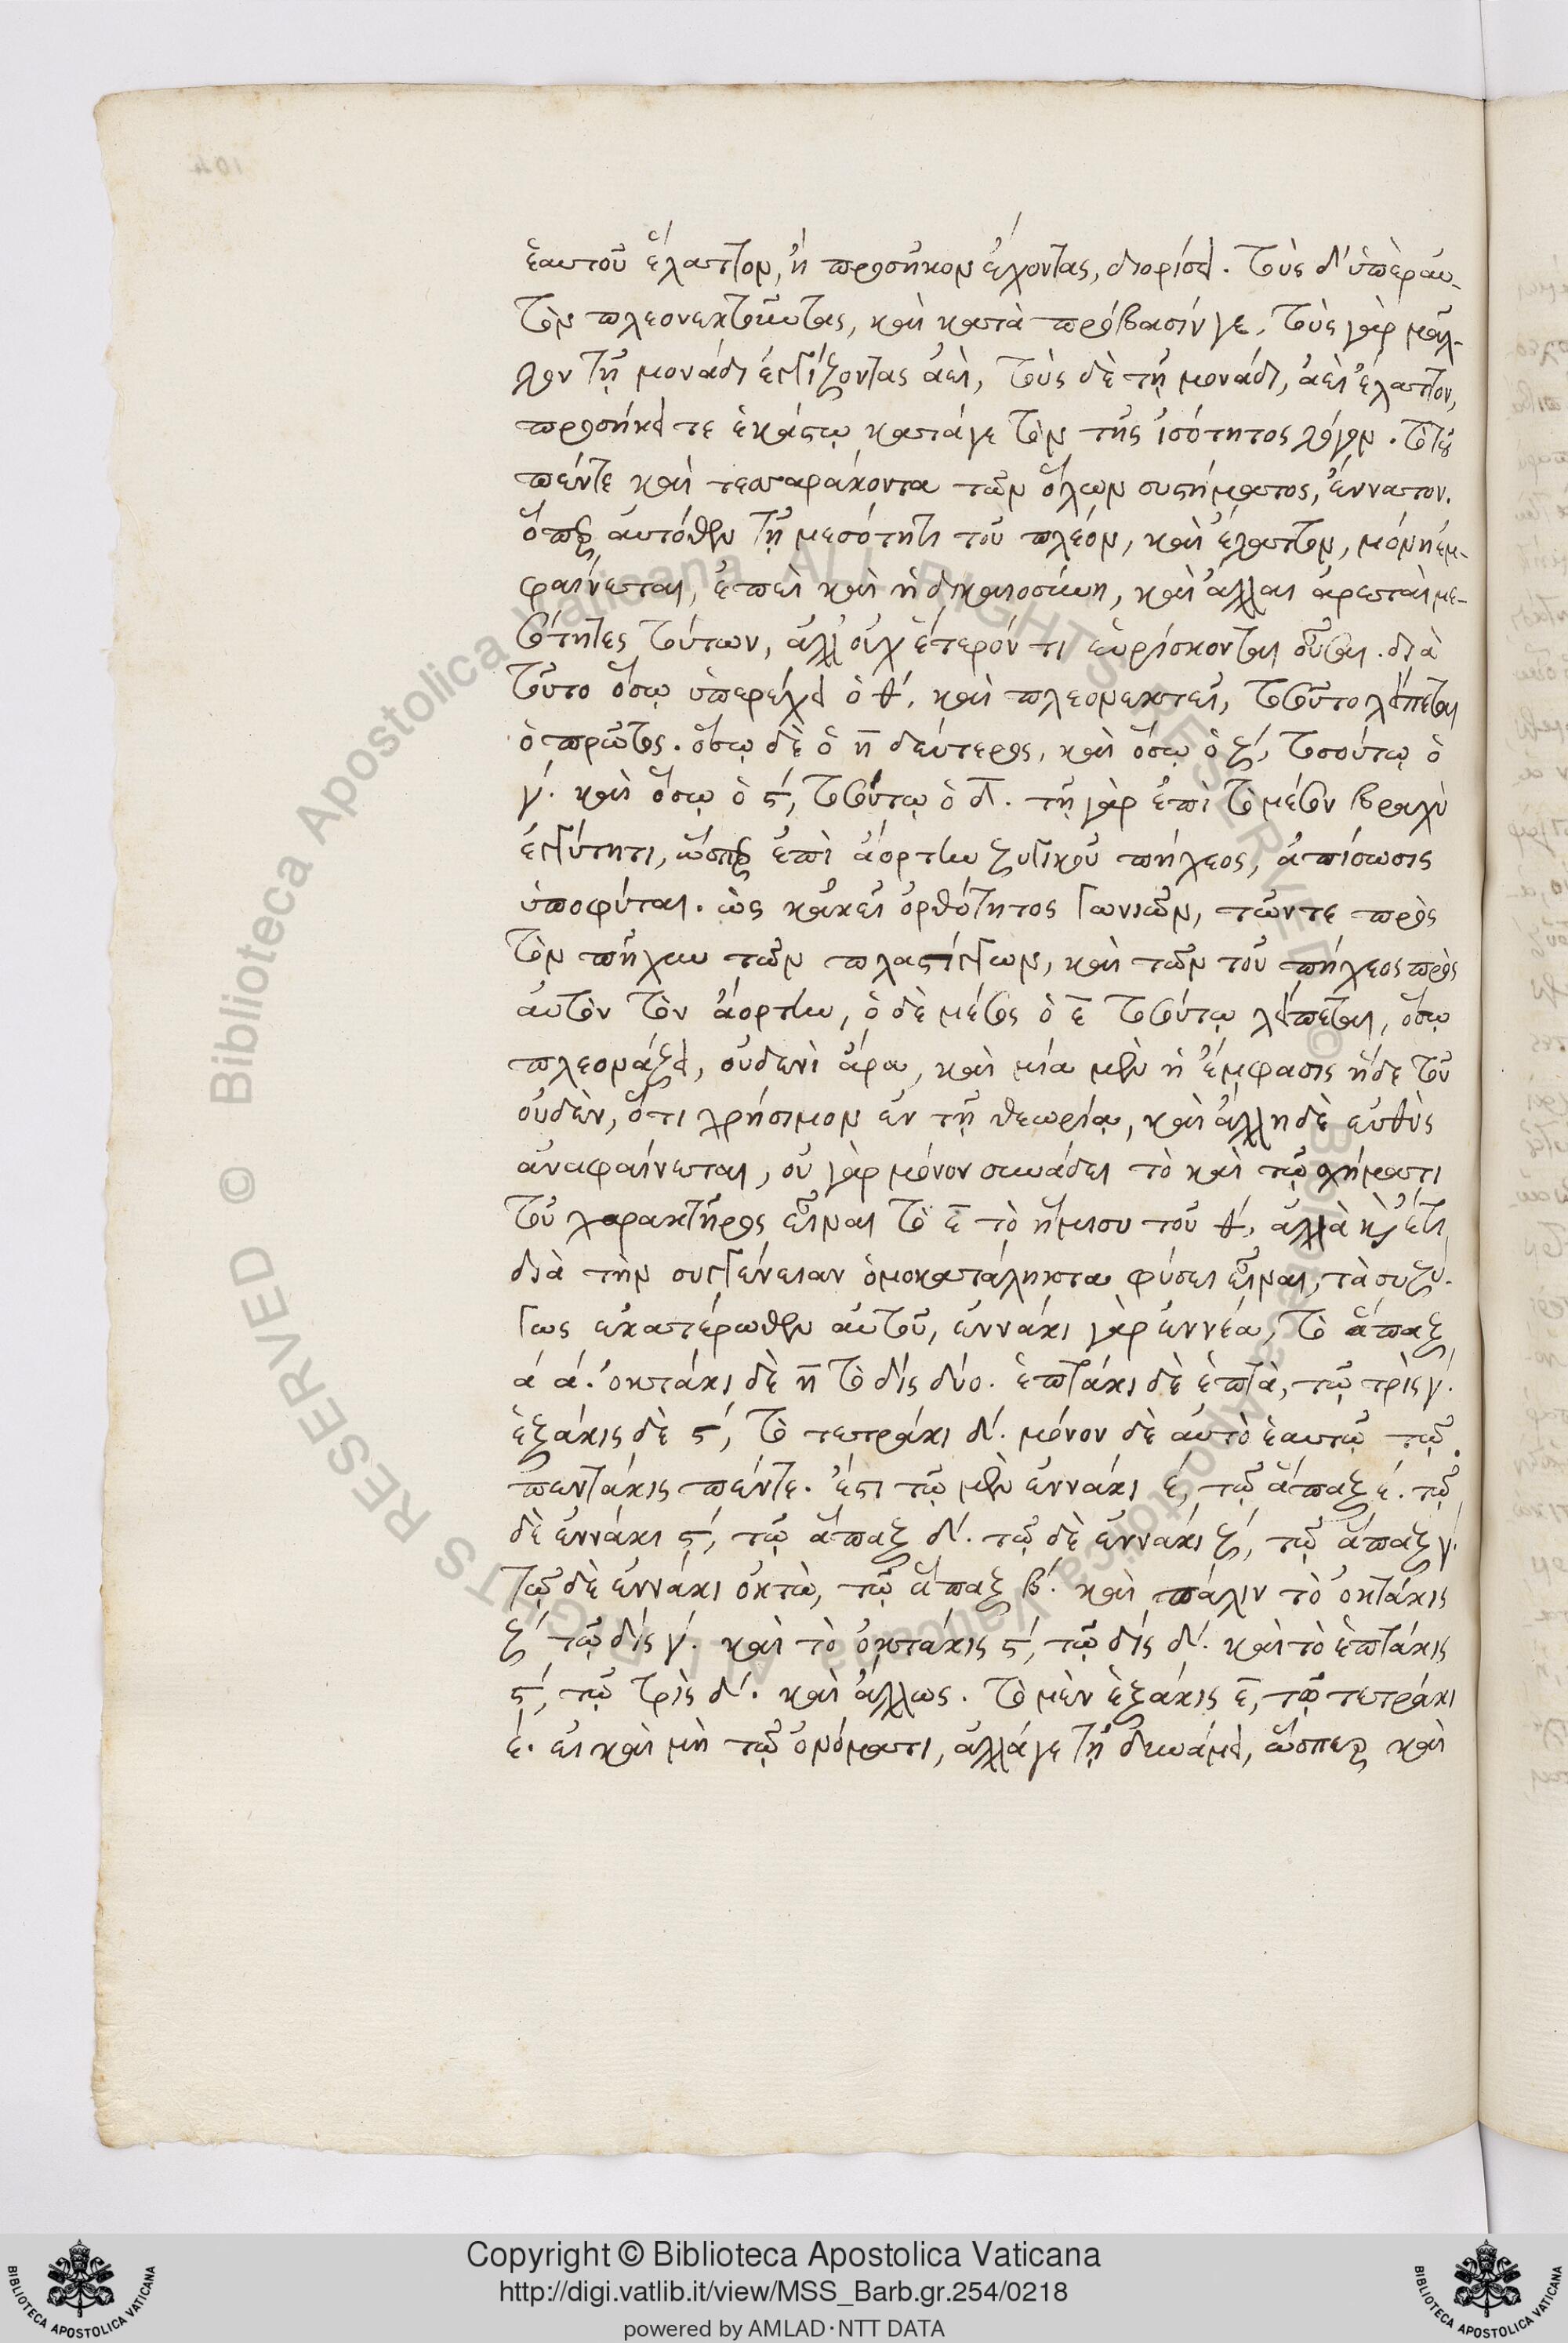 ἑαυτοῦ ἔλαττον, ἢ προσῆκον ἔχοντας, διορίσει. τοὺς δ' ὑπὲρ αυ-
τὸν πλεονεκτοῦντας, καὶ κατὰ πρόβασίν γε. τοὺς γὰρ μᾶλ-
λον τῇ μονάδι ἐγγίζοντας ἀεὶ, τοὺς δὲ τῇ μονάδι, ἀεὶ ἔλαττον,
προσήκει τε ἑκάστῳ κατάγε τὸν τῆς ἰσότητος λόγον. τὸ τοῦ
πέντε καὶ τεσσαράκοντα τῶν ὅλων συστήματος, ἔννατον.
ὅπερ αὐτόθεν τῇ μεσότητι τοῦ πλέον, καὶ ἔλαττον, μόνῃ ἐμ-
φαίνεται, ἐπεὶ καὶ ἡ δικαιοσύνη, καὶ ἄλλαι ἀρεταὶ με-
σότητες τούτων, ἀλλ' οὐχ ἕτερόν τι εὑρίσκονται οὖσαι. διὰ
τοῦτο ὅσῳ ὑπερέχει ὁ θ', καὶ πλεονεκτεῖ, τοσοῦτο λείπεται
ὁ πρῶτος. ὅσῳ δὲ ὁ η̅ δεύτερος, καὶ ὅσῳ ὁ ζ', τοσούτῳ ὁ
γ'. καὶ ὅσῳ ὁ ϛ', τοσούτῳ ὁ δ̅. τῇ γὰρ ἐπὶ τὸ μέσον βραχὺ
ἐγγύτητι, ὥσπερ ἐπὶ ἀορτὴν ζυγικοῦ πήχεος, ἀπίσωσις
ὑποφύται. ὡς κἀκεῖ ὀρθότητος γωνιῶν, τῶν τε πρὸς
τὸν πῆχυν τῶν πλαστίγγων, καὶ τῶν τοῦ πήχεος πρὸς
αὐτὸν τὸν ἀορτὴν, ὁ δὲ μέσος ὁ ε̅ τοσούτῳ λείπεται, ὅσῳ
πλεονάζει, οὐδενὶ ἄρα, καὶ μία μὲν ἡ ἔμφασις ἥδε τοῦ
οὐδὲν, ὅτι χρήσιμον ἐν τῇ θεωρίᾳ, καὶ ἄλλη δὲ εὐθὺς
ἀναφαίνεται, οὐ γὰρ μόνον συνάδει τὸ καὶ τῷ σχήματι
τοῦ χαρακτῆρος εἶναι τὸ ε̅ τὸ ἥμισυ τοῦ θ', ἀλλὰ κ' ἔτι
διὰ τὴν συγγένειαν ὁμοκατάληκτα φύσει εἶναι, τὰ συζύ-
γως ἑκατέρωθεν αὐτοῦ, ἐννάκι γὰρ ἐννέα, τὸ ἅπαξ
ά ά. ὀκτάκι δὲ η̅ τὸ δὶς δύο. ἑπτάκι δὲ ἑπτὰ, τῷ τρὶς γ'.
ἑξάκις δὲ ϛ', τὸ τετράκι δ'. μόνον δὲ αὐτὸ ἑαυτῷ τῷ
πεντάκις πέντε. ἔστι τῷ μὲν ἐννάκι έ, τῷ ἅπαξ έ. τῷ
δὲ ἐννάκι ϛ', τῷ ἅπαξ δ'. τῷ δὲ ἐννάκι ζ', τῷ ἅπαξ γ'.
τῷ δὲ ἐννάκι ὀκτὼ, τῷ ἅπαξ β'. καὶ πάλιν τὸ ὀκτάκις
ζ' τῷ δὶς γ'. καὶ τὸ ὀκτάκις ϛ', τῷ δὶς δ'. καὶ τὸ ἑπτάκις
ϛ', τῷ τρὶς δ'. καὶ ἄλλως. τὸ μὲν ἑξάκις ε̅, τῷ τετράκι
έ. εἰ καὶ μὴ τῷ ὀνόματι, ἀλλάγε τῇ δυνάμει, ὥσπερ καὶ
Biblioteca Apostolica Vaticana ALL RIGHTS RESERVED © Biblioteca Apostolica Vaticana ALL RIGHTS RESERVED ©
Copyright © Biblioteca Apostolica Vaticana
http://digi.vatlib.it/view/MSS_Barb.gr.254/0218
powered by AMLAD·NTT DATA
BIBLIOTECA APOSTOLICA VATICANA
BIBLIOTECA APOSTOLICA VATICANA